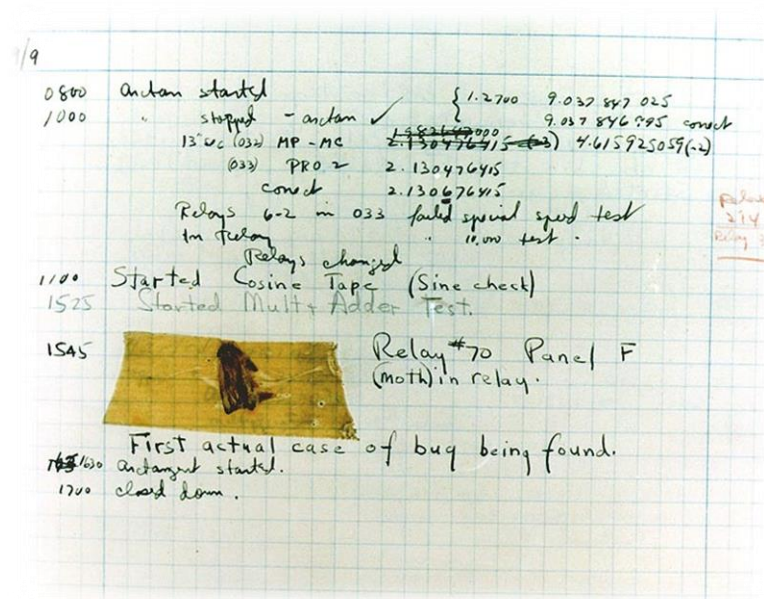 9/9
0800 Antan started
1000 " stopped - antan ✓ { 1.2700 9.037 847 025
9.037 846 995 conect
13"uc (032) MP - MC 2.130476415 (-3) 4.615925059(-2)
(033) PRO 2 2.130476415
conect 2.130676415
Relays 6-2 in 033 failed special speed test
In Relay " 10.000 test .
Relays changed
1100 Started Cosine Tape (Sine check)
1525 Started Mult+ Adder Test.
1545 Relay #70 Panel F
(moth) in relay.
First actual case of bug being found.
1630 antangent started.
1700 closed down.